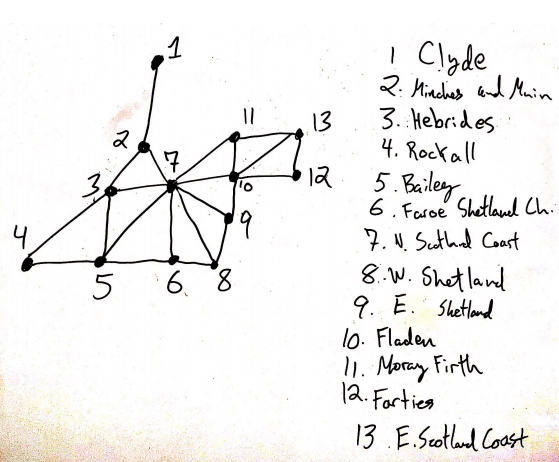 1
2
11
13
7
10
12
3
9
4
5
6
8
1 Clyde
2. Minches and Muin
3. Hebrides
4. Rockall
5. Bailey
6. Faroe Shetland Ch.
7. N. Scotland Coast
8. W. Shetland
9. E. Shetland
10. Fladen
11. Moray Firth
12. Forties
13. E. Scotland Coast